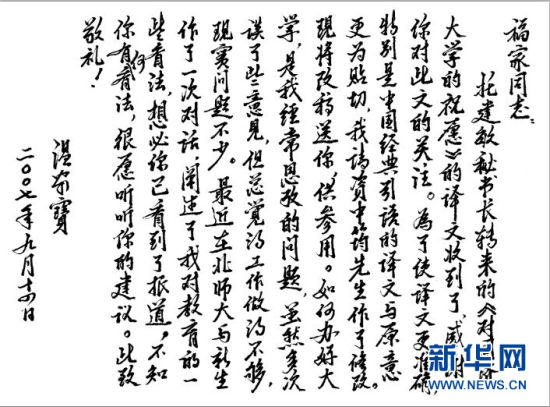 福家同志:
托建敏秘书长转来的《对
大学的祝愿》的译文收到了,感谢
你对此文的关注。为了使译文更准确,
特别是中国经典引语的译文与原意
更为贴切,我请资中筠先生作了修改。
现将改稿送你,供参用。如何办好大
学,是我经常思考的问题,虽然多次
谈了些意见,但总觉得工作做得不够,
现实问题不少。最近在北师大与新生
作了一次对话,阐述了我对教育的一
些看法,想必你已看到了报道,不知
你有何看法,很愿听听你的建议。此致
敬礼!
温家宝
二〇〇七年九月十四日
新华网
WWW.NEWS.CN